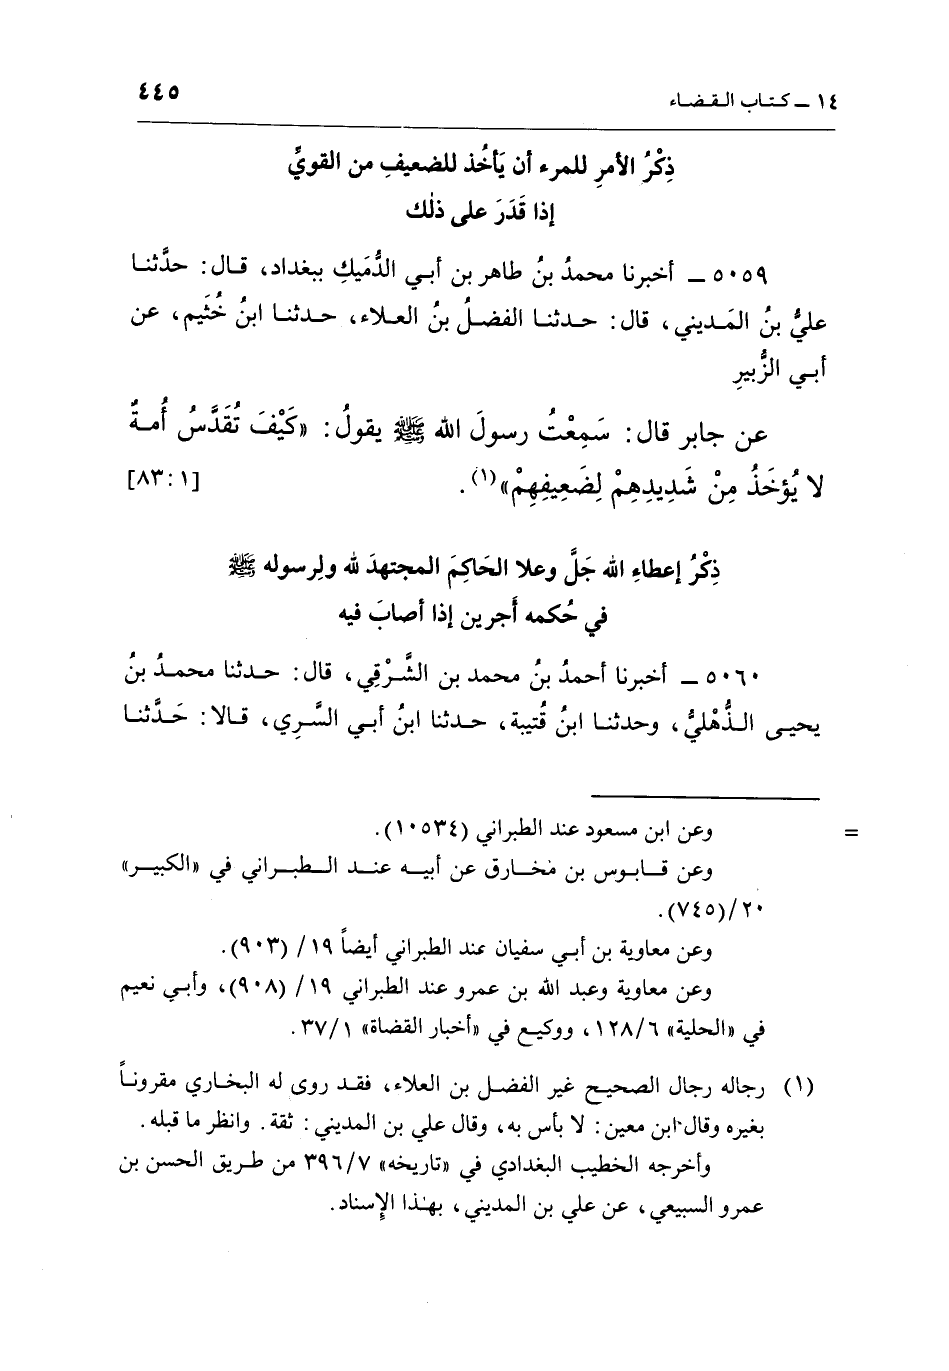 ١٤ ـ كتاب القضاء
٤٤٥
ذِكْرُ الأمرِ للمرء أن يَأخُذ للضعيفِ من القويِّ
إذا قَدَرَ على ذلك
٥٠٥٩ ـ أخبرنا محمدُ بنُ طاهر بن أبي الدُّمَيكِ ببغداد، قال: حدَّثنا
عليُّ بنُ المَديني، قال: حدثنا الفضلُ بنُ العلاء، حدثنا ابنُ خُثَيم، عن
أبي الزُّبيرِ
عن جابر قال: سَمِعْتُ رسولَ الله ﷺ يقولُ: «كَيْفَ تُقَدَّسُ أُمةٌ
لا يُؤخَذُ مِنْ شَدِيدِهِمْ لِضَعِيفِهِمْ»(١). [١: ٨٣]
ذِكْرُ إعطاءِ الله جَلَّ وعلا الحَاكِمَ المجتهدَ لله ولِرسوله ﷺ
في حُكمه أَجرين إذا أصابَ فيه
٥٠٦٠ ـ أخبرنا أحمدُ بنُ محمد بن الشَّرْقي، قال: حدثنا محمدُ بنُ
يحيى الذُّهْليُّ، وحدثنا ابنُ قُتيبة، حدثنا ابنُ أبي السَّرِي، قالا: حَدَّثنا
= وعن ابن مسعود عند الطبراني (١٠٥٣٤).
وعن قابوس بن مُخارق عن أبيه عند الطبراني في «الكبير»
٢٠/(٧٤٥).
وعن معاوية بن أبي سفيان عند الطبراني أيضاً ١٩/ (٩٠٣).
وعن معاوية وعبد الله بن عمرو عند الطبراني ١٩/ (٩٠٨)، وأبي نعيم
في «الحلية» ١٢٨/٦، ووكيع في «أخبار القضاة» ٣٧/١.
(١) رجاله رجال الصحيح غير الفضل بن العلاء، فقد روى له البخاري مقروناً
بغيره وقال ابن معين: لا بأس به، وقال علي بن المديني: ثقة. وانظر ما قبله.
وأخرجه الخطيب البغدادي في «تاريخه» ٣٩٦/٧ من طريق الحسن بن
عمرو السبيعي، عن علي بن المديني، بهٰذا الإِسناد.